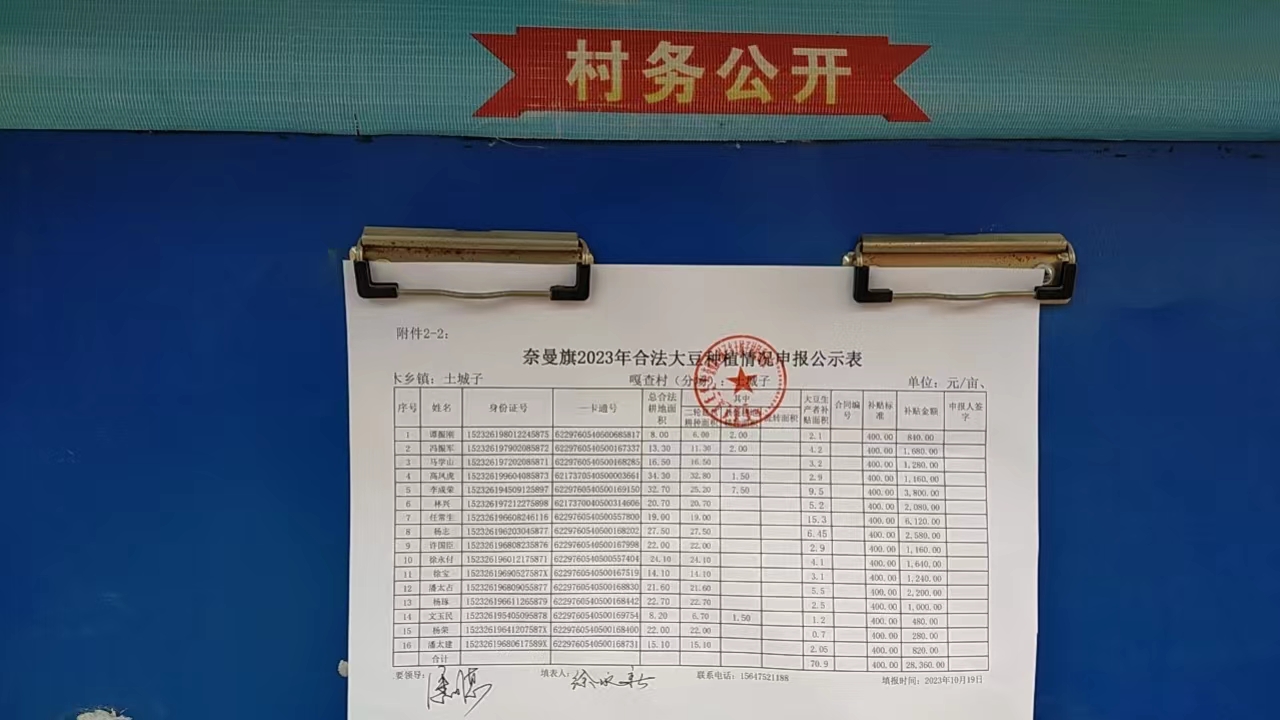 村务公开
附件2-2:
奈曼旗2023年合法大豆种植情况申报公示表
乡镇：土城子 嘎查村（分场）：土城子 单位：元/亩、
序号 姓名 身份证号 一卡通号 总合法耕地面积 其中 大豆生产者补贴面积 合同编号 补贴标准 补贴金额 申报人签字
1 谭振刚 152326198012245875 6229760540500685817 8.00 6.00 2.00 2.1 400.00 840.00
2 冯振军 152326197902085872 6229760540500167337 13.30 11.30 2.00 4.2 400.00 1,680.00
3 马学山 152326197202085871 6229760540500168285 16.50 16.50 3.2 400.00 1,280.00
4 高凤虎 152326199604085873 6217370540500003661 34.30 32.80 1.50 2.9 400.00 1,160.00
5 李成荣 152326194509125897 6229760540500169150 32.70 25.20 7.50 9.5 400.00 3,800.00
6 林兴 152326197212275898 6217370040500314606 20.70 20.70 5.2 400.00 2,080.00
7 任常生 152326196608246116 6229760540500557800 19.00 19.00 15.3 400.00 6,120.00
8 杨志 152326196203045877 6229760540500168202 27.50 27.50 6.45 400.00 2,580.00
9 许国臣 152326196808235876 6229760540500167998 22.00 22.00 2.9 400.00 1,160.00
10 徐永付 152326196012175871 6229760540500557404 24.10 24.10 4.1 400.00 1,640.00
11 徐宝 15232619690527587X 6229760540500167519 14.10 14.10 3.1 400.00 1,240.00
12 潘太占 152326196809055877 6229760540500168830 21.60 21.60 5.5 400.00 2,200.00
13 杨琢 152326196611265879 6229760540500168442 22.70 22.70 2.5 400.00 1,000.00
14 文玉民 152326195405095878 6229760540500169754 8.20 6.70 1.50 1.2 400.00 480.00
15 杨荣 15232619641207587X 6229760540500168400 22.00 22.00 0.7 400.00 280.00
16 潘太建 15232619680617589X 6229760540500168731 15.10 15.10 2.05 400.00 820.00
合计 70.9 400.00 28,360.00
要领导: 填表人: 联系电话：15647521188 填报时间：2023年10月19日